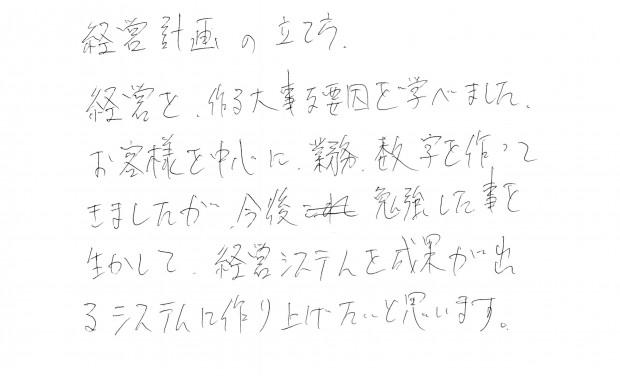 経営計画の立て方.
経営を、作る大事な要因を学べました、
お客様を中心に、業務、数字を作って
きましたが、今後 勉強した事を
生かして、経営システムを成果が出
るシステムに作り上げたいと思います。